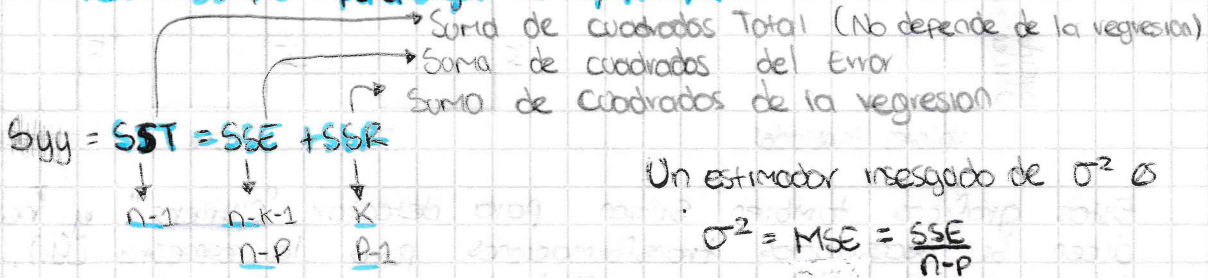 Suma de cuadrados Total (No depende de la regresion)
Suma de cuadrados del Error
Suma de cuadrados de la regresion
Syy = SST = SSE + SSR
n-1 n-k-1 K
n-p P-1
Un estimador insesgado de σ² es
σ² = MSE = SSE / n-p